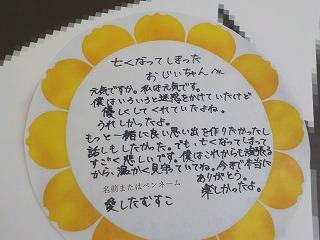 亡くなってしまった
おじいちゃんへ
元気ですか。私は元気です。
僕はいろいろと迷惑をかけていたけど
優しくしてくれていたよね。
うれしかったよ。
もっと一緒に良い思い出を作りたかったし
話しもしたかった。でも、亡くなってしまって
すごく悲しいです。僕はこれからも頑張る
から、温かく見守っていてね。今まで本当に
ありがとう。
楽しかったよ。
名前またはペンネーム
愛したむすこ